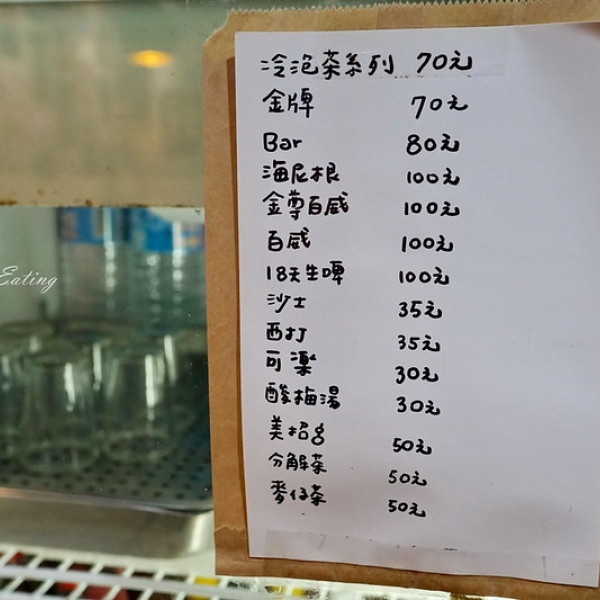 冷泡茶系列 70元
金牌 70元
Bar 80元
海尼根 100元
金尊百威 100元
百威 100元
18天生啤 100元
沙士 35元
西打 35元
可樂 30元
酸梅湯 30元
美招g 50元
分解茶 50元
麥仔茶 50元
Eating